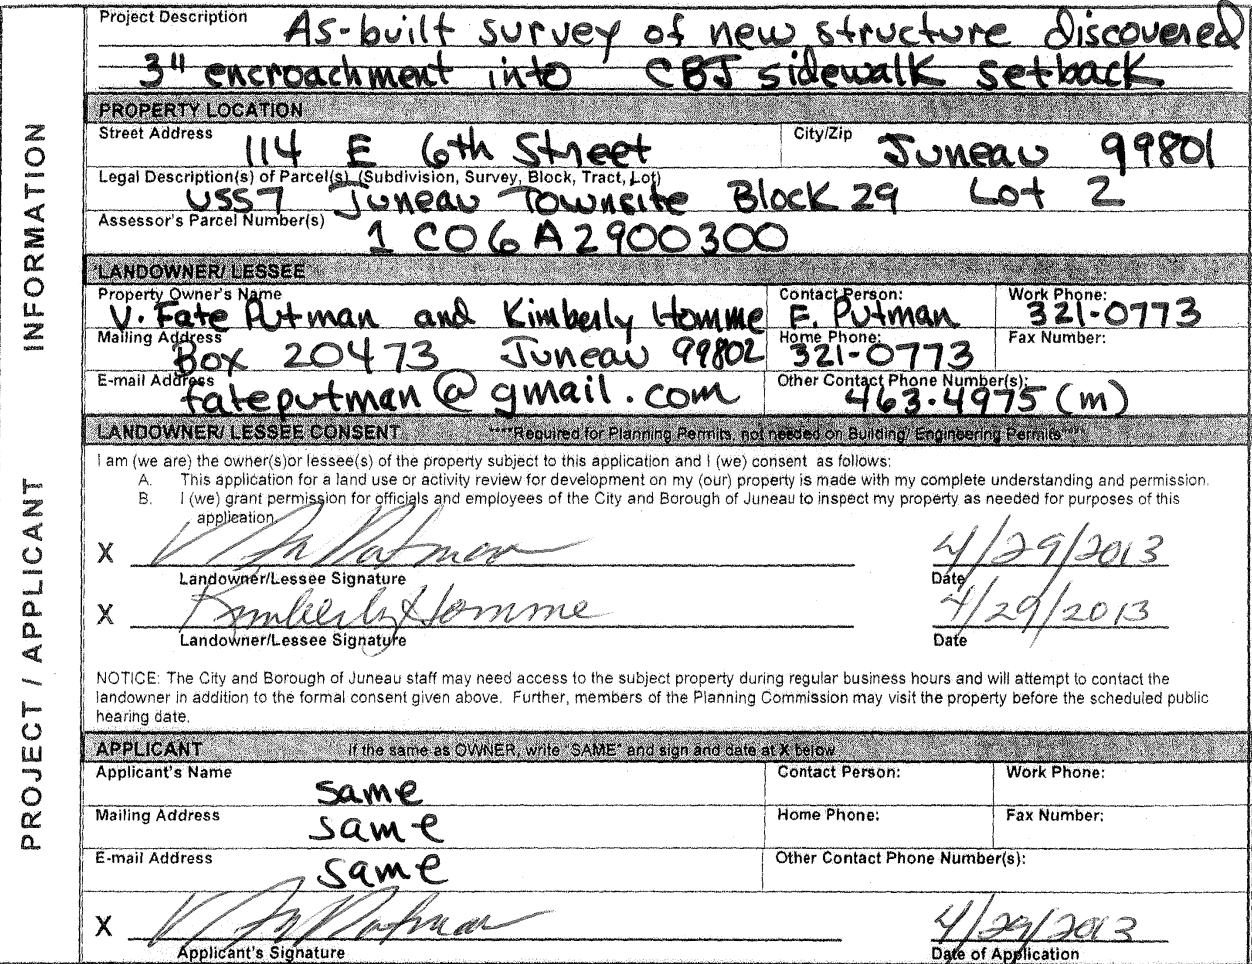 Project Description
As-built survey of new structure discovered
3" encroachment into CBJ sidewalk setback
PROPERTY LOCATION
Street Address 114 E 6th Street City/Zip Juneau 99801
Legal Description(s) of Parcel(s) (Subdivision, Survey, Block, Tract, Lot)
USS7 Juneau Townsite Block 29 Lot 2
Assessor's Parcel Number(s) 1C06A2900300
LANDOWNER/ LESSEE
Property Owner's Name Contact Person: Work Phone:
V. Fate Putman and Kimberly Homme F. Putman 321-0773
Mailing Address Home Phone: Fax Number:
Box 20473 Juneau 99802 321-0773
E-mail Address Other Contact Phone Number(s):
fateputman@gmail.com 463-4975 (m)
LANDOWNER/ LESSEE CONSENT ****Required for Planning Permits, not needed on Building/ Engineering Permits****
I am (we are) the owner(s)or lessee(s) of the property subject to this application and I (we) consent as follows:
A. This application for a land use or activity review for development on my (our) property is made with my complete understanding and permission.
B. I (we) grant permission for officials and employees of the City and Borough of Juneau to inspect my property as needed for purposes of this
application.
X V Fate Putman 4/29/2013
Landowner/Lessee Signature Date
X Kimberly Homme 4/29/2013
Landowner/Lessee Signature Date
NOTICE: The City and Borough of Juneau staff may need access to the subject property during regular business hours and will attempt to contact the
landowner in addition to the formal consent given above. Further, members of the Planning Commission may visit the property before the scheduled public
hearing date.
APPLICANT If the same as OWNER, write "SAME" and sign and date at X below
Applicant's Name same Contact Person: Work Phone:
Mailing Address same Home Phone: Fax Number:
E-mail Address same Other Contact Phone Number(s):
X V Fate Putman 4/29/2013
Applicant's Signature Date of Application
PROJECT / APPLICANT INFORMATION